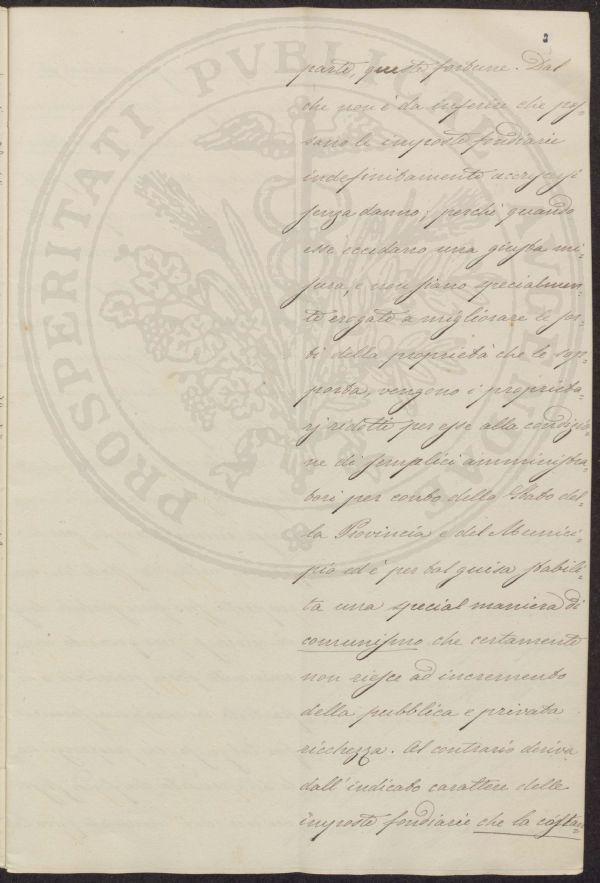 3
PROSPERITATI PVBLICAE AVGENDAE
parte, queste fortune. Dal
che non è da inferire che pos=
sano le imposte fondiarie
indefinitamente accrescersi
senza danno; perchè quando
esse eccedano una giusta mi=
sura, e non siano specialmen=
te erogate a migliorare le sor=
ti della proprietà che le sop=
porta, vengono i proprieta=
rj ridotti per esse alla condizio=
ne di semplici amministra=
tori per conto dello Stato del=
la Provincia e del Munici=
pio ed è per tal guisa stabili=
ta una special maniera di
comunismo che certamente
non riesce ad incremento
della pubblica e privata
ricchezza. Al contrario deriva
dall'indicato carattere delle
imposte fondiarie che la costan=